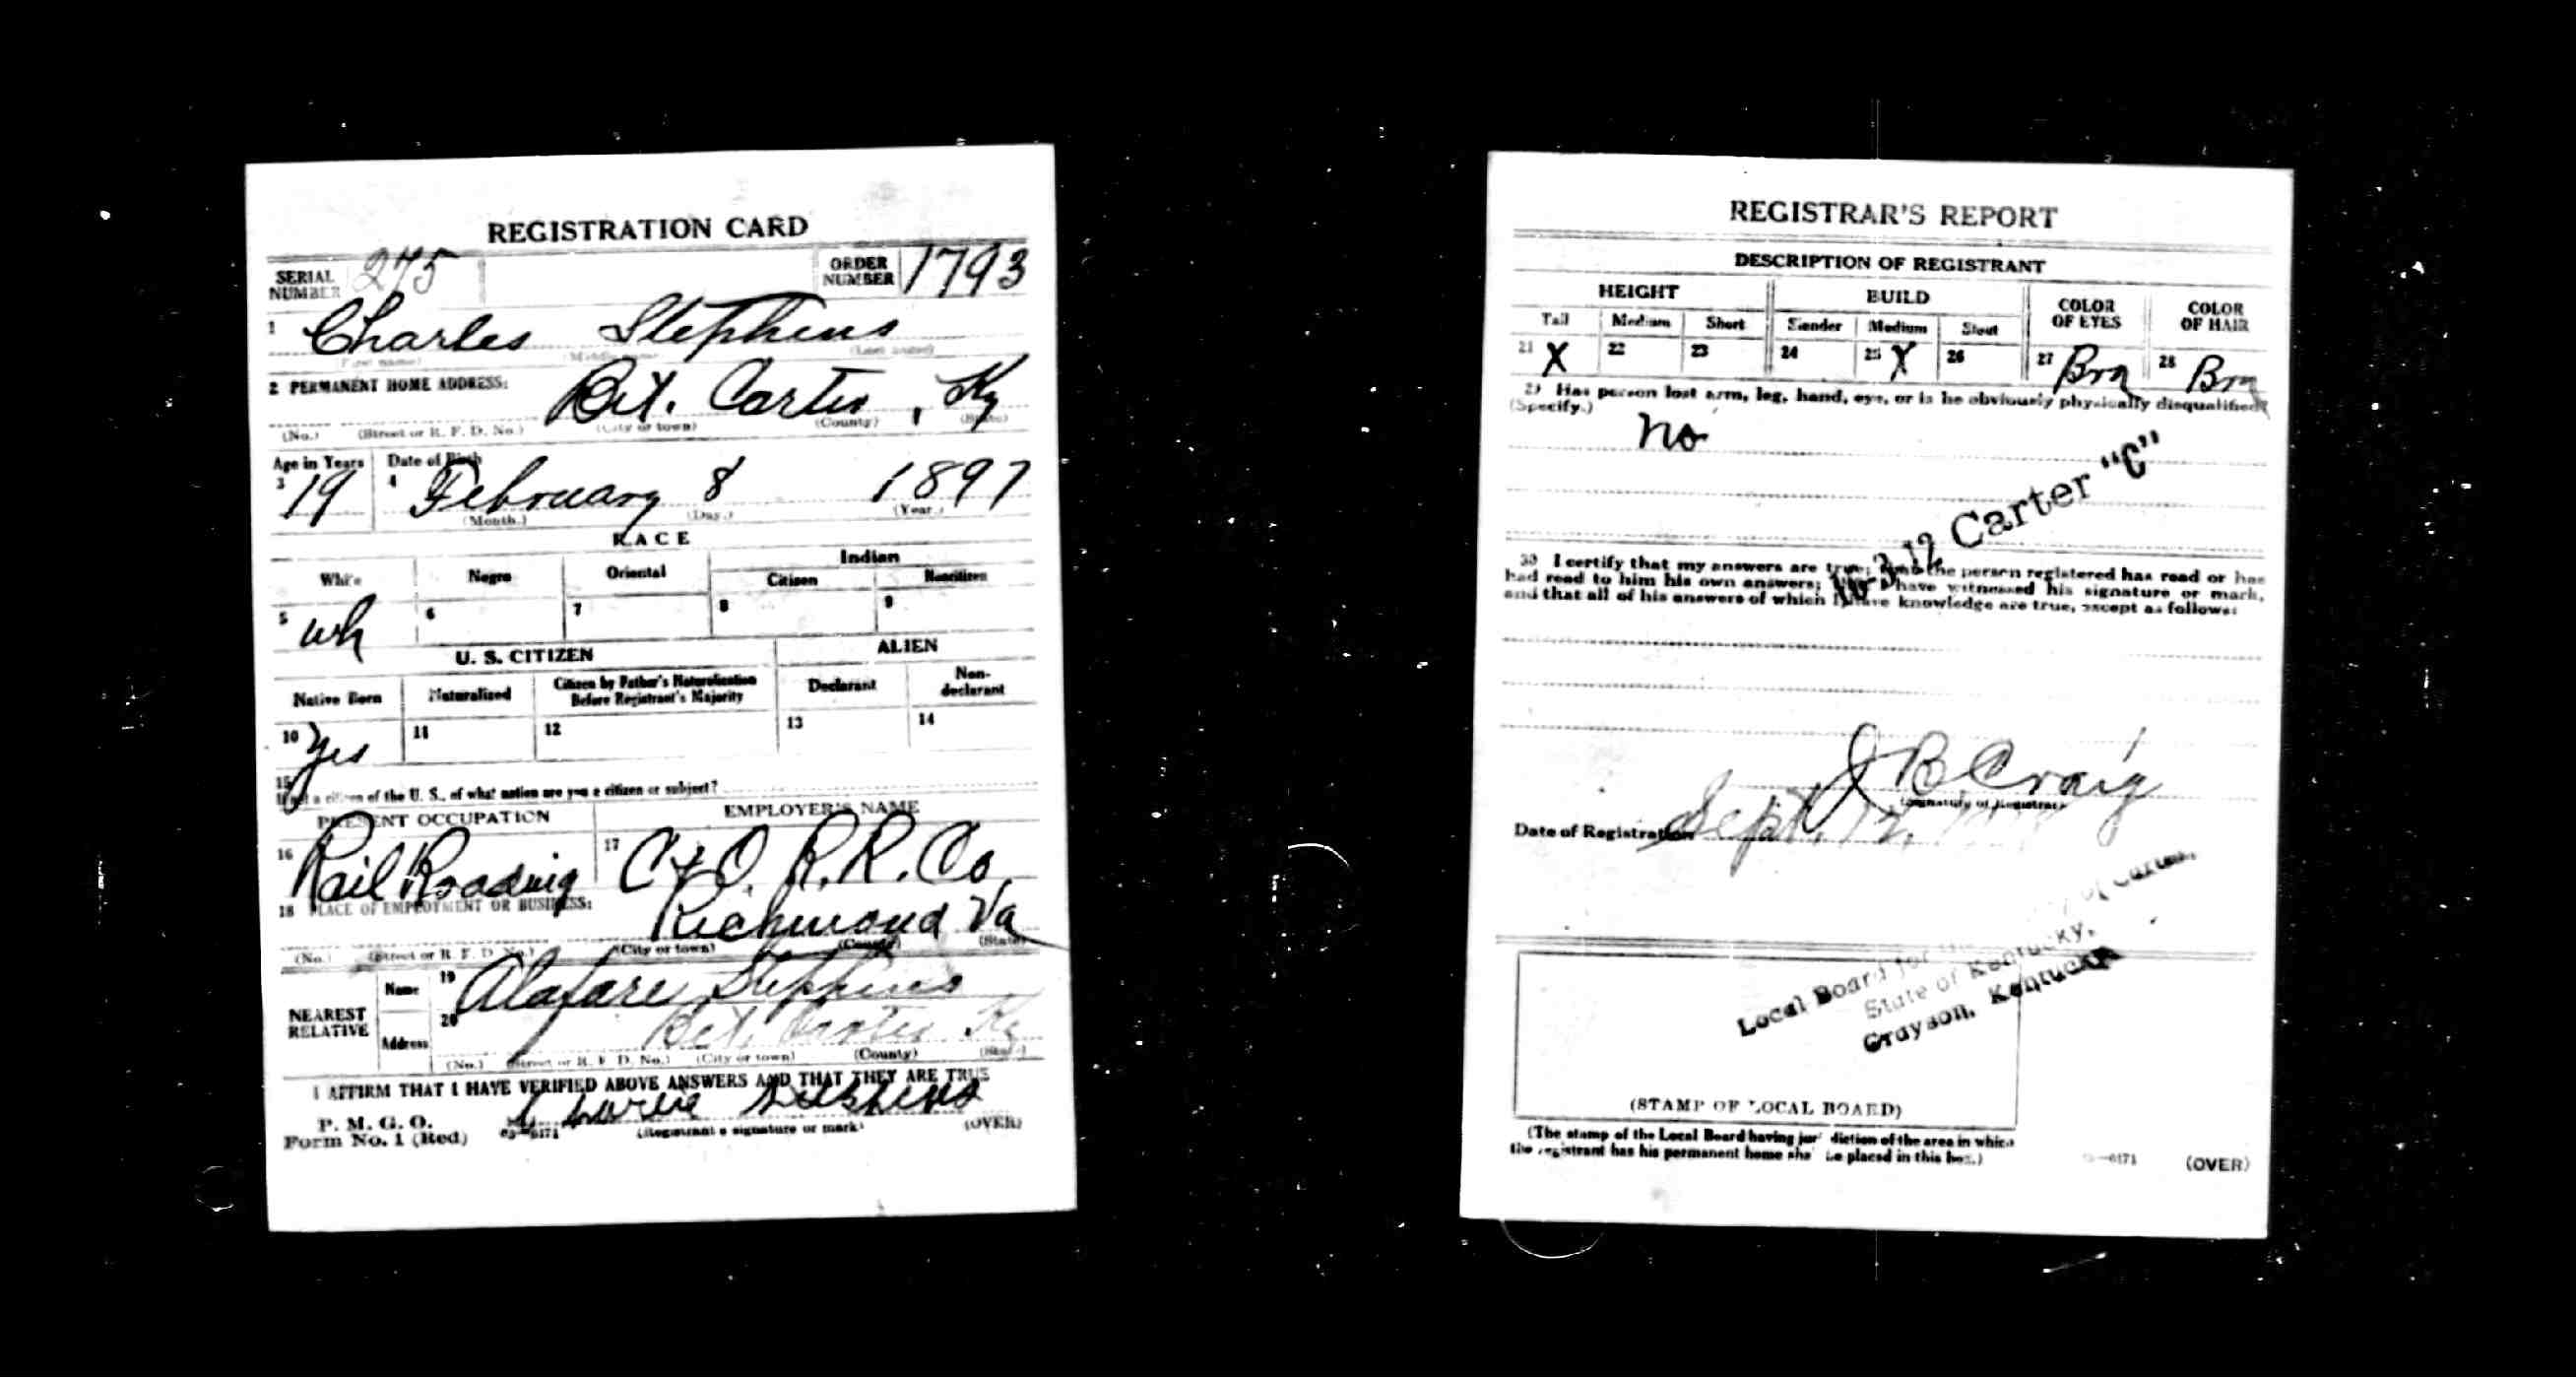 REGISTRATION CARD
SERIAL NUMBER 275 ORDER NUMBER 1793
1 Charles Stephens
(First name) (Middle name) (Last name)
2 PERMANENT HOME ADDRESS:
Bet. Carter, Ky
(No.) (Street or R. F. D. No.) (City or town) (County) (State)
Age in Years Date of Birth
3 19 4 February 8 1897
(Month.) (Day.) (Year.)
RACE
White Negro Oriental Indian
Citizen Noncitizen
5 wh 6 7 8 9
U. S. CITIZEN ALIEN
Native Born Naturalized Citizen by Father's Naturalization Before Registrant's Majority Declarant Non-declarant
10 Yes 11 12 13 14
15
If not a citizen of the U. S., of what nation are you a citizen or subject?
PRESENT OCCUPATION EMPLOYER'S NAME
16 Rail Roading 17 C & O. R.R. Co
18 PLACE OF EMPLOYMENT OR BUSINESS:
Richmond Va
(No.) (Street or R. F. D. No.) (City or town) (County) (State)
NEAREST RELATIVE Name 19 Alafare Stephens
Address 20 Bet. Carter Ky
(No.) (Street or R. F. D. No.) (City or town) (County) (State)
I AFFIRM THAT I HAVE VERIFIED ABOVE ANSWERS AND THAT THEY ARE TRUE
P. M. G. O.
Form No. 1 (Red) Stephens
(Registrant's signature or mark) (OVER)
REGISTRAR'S REPORT
DESCRIPTION OF REGISTRANT
HEIGHT BUILD COLOR OF EYES COLOR OF HAIR
Tall Medium Short Slender Medium Stout
21 X 22 23 24 25 X 26 27 Brn 28 Brn
29 Has person lost arm, leg, hand, eye, or is he obviously physically disqualified?
(Specify.)
no
16-3-12 Carter "C"
30 I certify that my answers are true; that the person registered has read or has
had read to him his own answers; that I have witnessed his signature or mark,
and that all of his answers of which I have knowledge are true, except as follows:
J B Craig
(Signature of Registrar)
Date of Registration Sept. 12,
Local Board for the of Carter,
State of Kentucky,
Grayson, Kentucky
(STAMP OF LOCAL BOARD)
(The stamp of the Local Board having jurisdiction of the area in which
the registrant has his permanent home shall be placed in this box.)
(OVER)